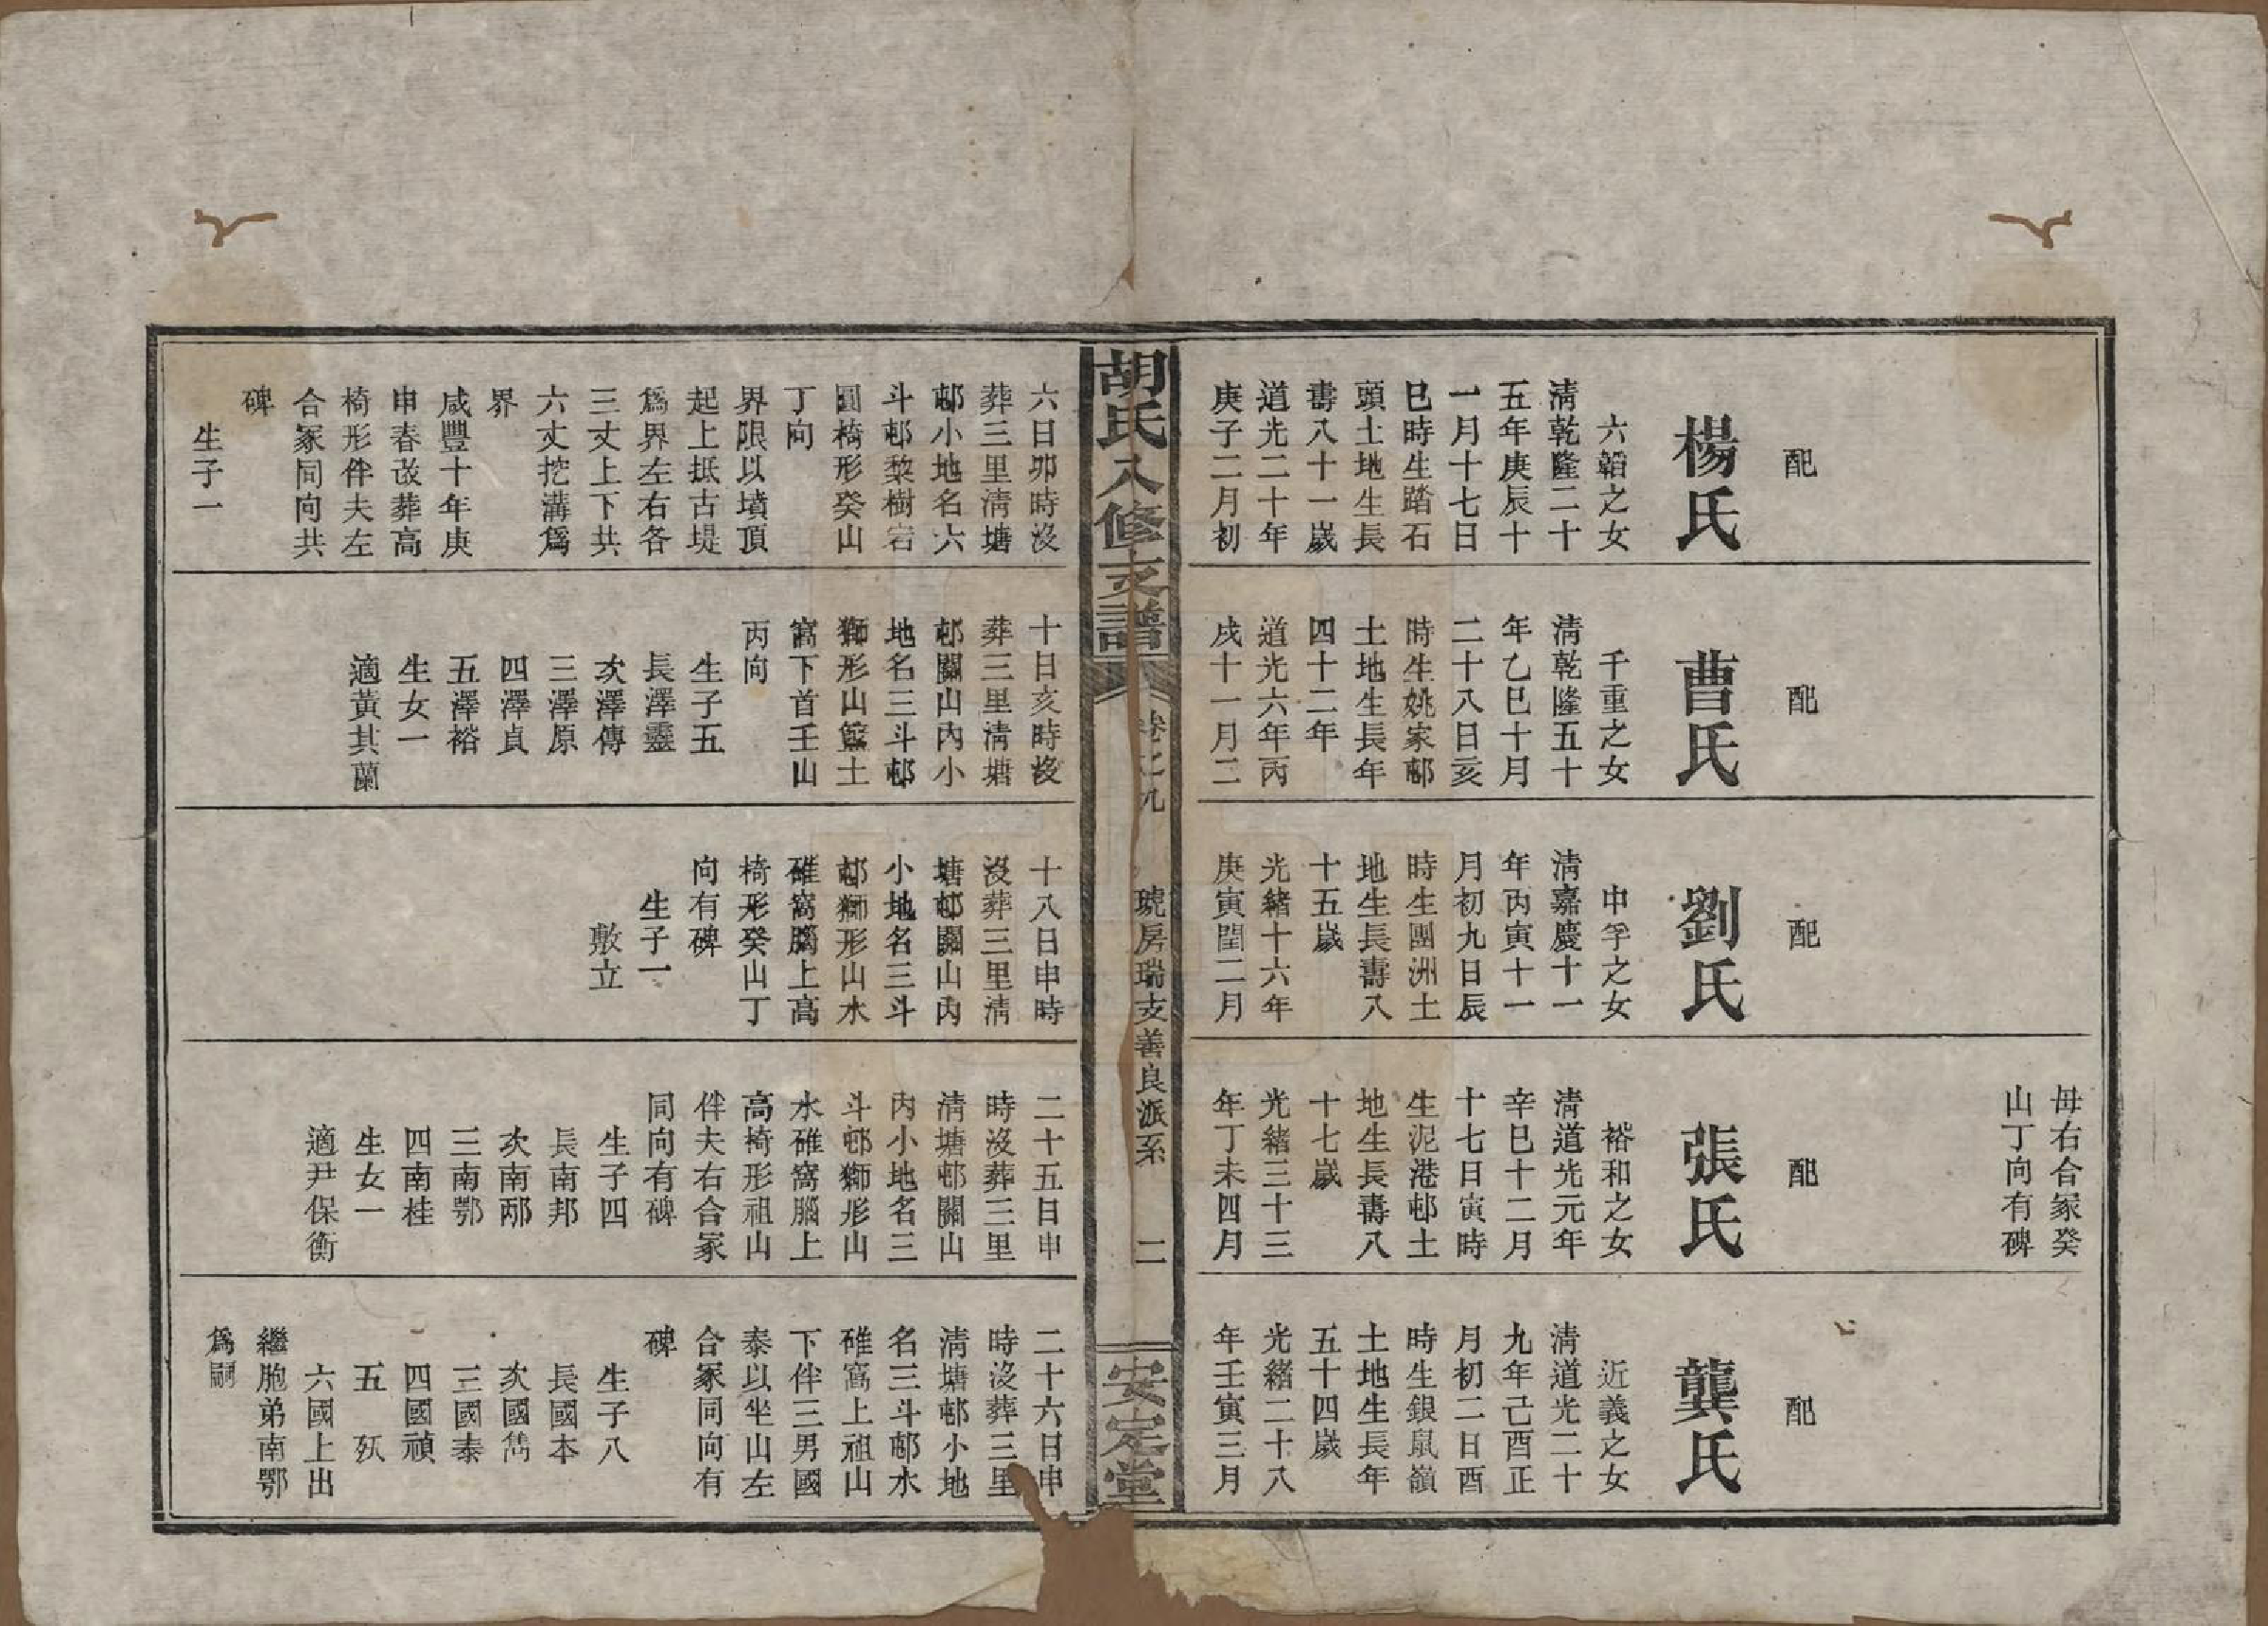 配
楊氏
六韜之女
清乾隆二十
五年庚辰十
一月十七日
巳時生踏石
頭土地生長
壽八十一歲
道光二十年
庚子二月初
六日卯時沒
葬三里清塘
邨小地名六
斗邨黎樹宕
圓椅形癸山
丁向
界限以墳頂
起上抵古堤
爲界左右各
三丈上下共
六丈挖溝爲
界
咸豐十年庚
申春改葬高
椅形伴夫左
合冢同向共
碑
生子一
配
曹氏
千重之女
清乾隆五十
年乙巳十月
二十八日亥
時生姚家邨
土地生長年
四十二年
道光六年丙
戌十一月二
十日亥時沒
葬三里清塘
邨關山內小
地名三斗邨
獅形山籃土
窩下首壬山
丙向
生子五
長澤靈
次澤傳
三澤原
四澤貞
五澤裕
生女一
適黃其蘭
配
劉氏
申孚之女
清嘉慶十一
年丙寅十一
月初九日辰
時生團洲土
地生長壽八
十五歲
光緒十六年
庚寅閏二月
十八日申時
沒葬三里清
塘邨關山內
小地名三斗
邨獅形山水
碓窩腦上高
椅形癸山丁
向有碑
生子一
敷立
母右合冢癸
山丁向有碑
配
張氏
裕和之女
清道光元年
辛巳十二月
十七日寅時
生泥港邨土
地生長壽八
十七歲
光緒三十三
年丁未四月
二十五日申
時沒葬三里
清塘邨關山
內小地名三
斗邨獅形山
水碓窩腦上
高椅形祖山
伴夫右合冢
同向有碑
生子四
長南邦
次南邴
三南鄂
四南桂
生女一
適尹保衡
配
龔氏
近義之女
清道光二十
九年己酉正
月初二日酉
時生銀鼠嶺
土地生長年
五十四歲
光緒二十八
年壬寅三月
二十六日申
時沒葬三里
清塘邨小地
名三斗邨水
碓窩上祖山
下伴三男國
泰以坐山左
合冢同向有
碑
生子八
長國本
次國儁
三國泰
四國禎
五　殀
六國上出
繼胞弟南鄂
爲嗣
胡氏八修支譜
卷之九
琥房瑞支善良派系
二
安定堂